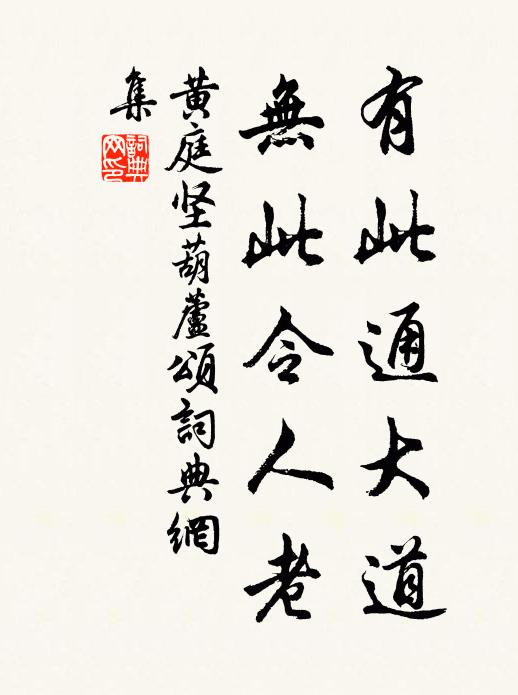 有此通大道
無此令人老
黄庭坚葫蘆頌詞典網
集
詞典
网印